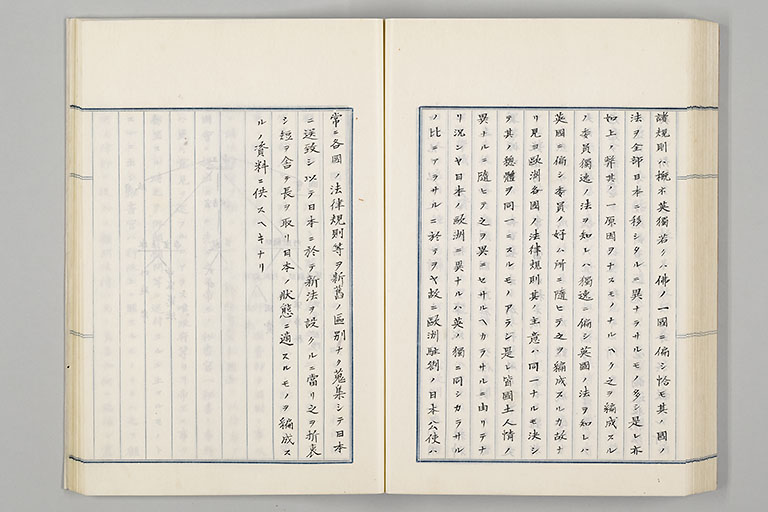 諸規則ハ概子英獨若クハ佛ノ一國ニ偏シ恰モ其ノ國ノ
法ヲ全部日本ニ移シタルニ異ナラサルモノ多シ是レ亦
如上ノ弊其ノ一原因ヲナスモノナルヘク之ヲ編成スル
ノ委員獨逸ノ法ヲ知レハ獨逸ニ偏シ英國ノ法ヲ知レハ
英國ニ偏シ委員ノ好ム所ニ隨ヒテ之ヲ編成スルカ故ナ
リ見ヨ歐洲各國ノ法律規則其ノ主意ハ同一ナルモ決シ
テ其ノ體ヲ同一ニスルモノアラジ是レ皆國土人情ノ
異ナルニ隨ヒテ之ヲ異ニセサルヘカラサルニ由リテナ
リ況ンヤ日本ノ歐洲ニ異ナルハ英ノ獨ニ同シカラサル
ノ比ニアラサルニ於テヲヤ故ニ歐洲駐劄ノ日本公使ハ
常ニ各國ノ法律規則等ヲ新舊ノ區別ナク蒐集シテ日本
ニ送致シ以テ日本ニ於テ新法ヲ設クルニ當リ之ヲ折衷
シ短ヲ舎テ長ヲ取リ日本ノ狀態ニ適スルモノヲ編成ス
ルノ資料ニ供スヘキナリ